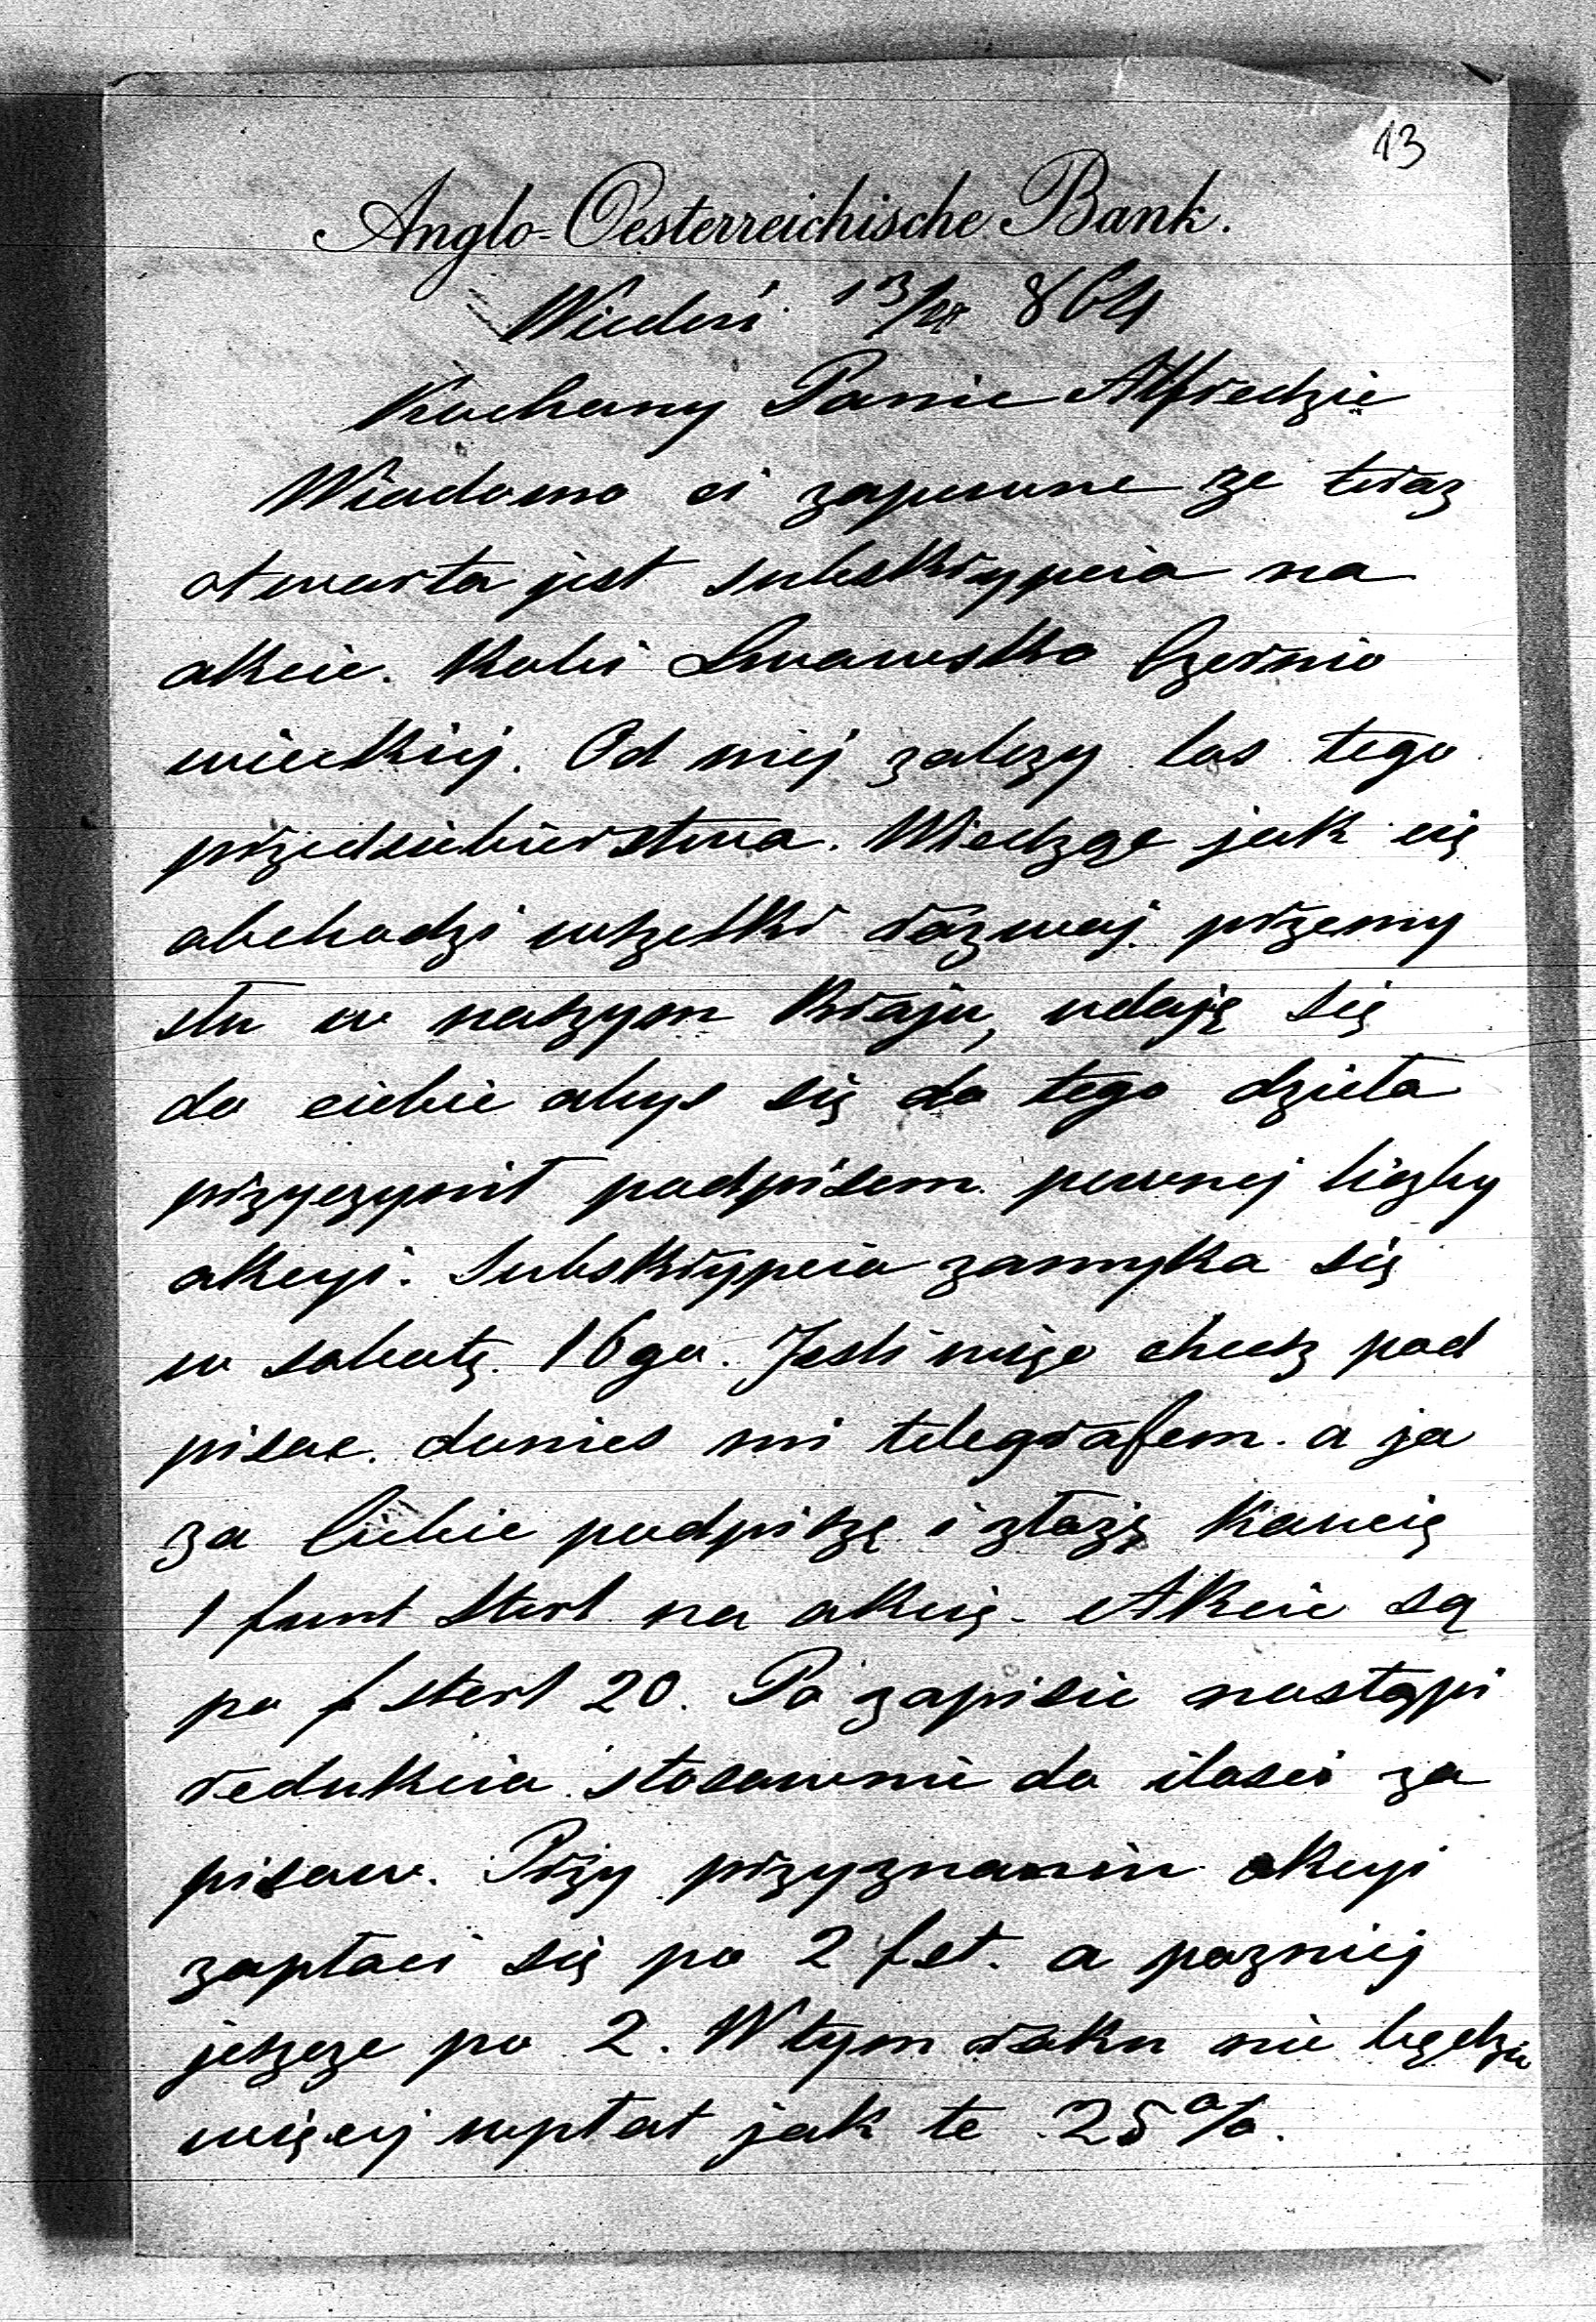 13
Anglo-Oesterreichische Bank.
Wiedeń 13/ 864
Kochany Panie Alfredzie
Wiadomo ci zapewne ze teraz
otwarta jest subskrypcia na
akcie. Kolei Lwowsko Czernio
wieckiej. Od niej zalezy los tego
przedsiebierstwa. Wiedząc jak cię
obchodzi wszelki rozwoj przemy
słu w naszym Kraju, udaję się
do ciebie abys się do tego dzieła
przyczynił podpisem pewnej liczby
akcyi. Subskrypcia zamyka się
w sobotę. 16go. Jesli więc chcesz pod
pisac. donies mi telegrafem. a ja
za Ciebie podpiszę i złożę Kaucię
1 funt Sterl na akcię. Akcie są
po f sterl 20. Po zapisie nastąpi
redukcia stosownie do ilosci za
pisow. Przy przyznaniu akcyi
zapłaci się po 2 f st. a pozniej
jeszcze po 2. W tym roku nie będzie
więcej wpłat jak te 25%.